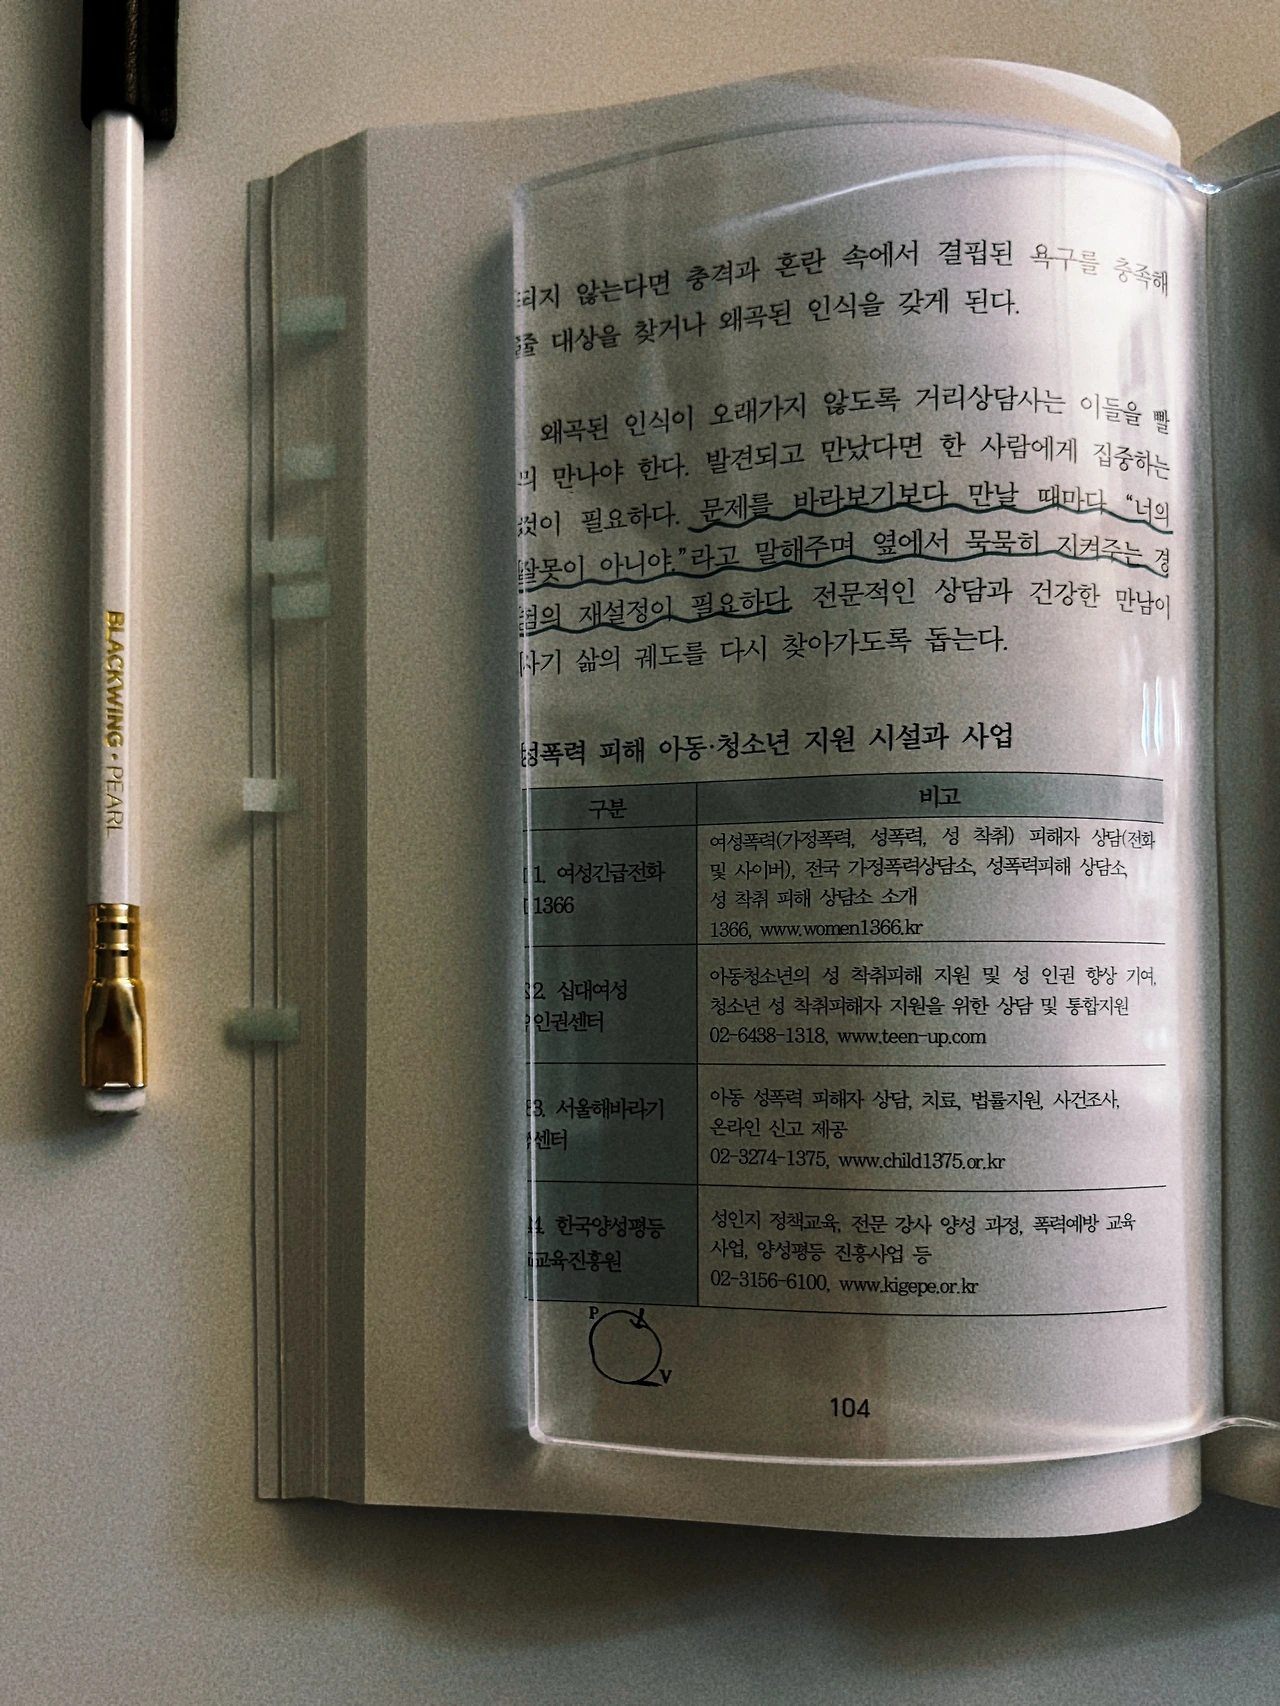 BLACKWING • PEARL
않는다면 충격과 혼란 속에서 결핍된 욕구를 충족해
줄 대상을 찾거나 왜곡된 인식을 갖게 된다.
왜곡된 인식이 오래가지 않도록 거리상담사는 이들을 빨
리 만나야 한다. 발견되고 만났다면 한 사람에게 집중하는
것이 필요하다. 문제를 바라보기보다 만날 때마다 “너의
잘못이 아니야.”라고 말해주며 옆에서 묵묵히 지켜주는 경
험의 재설정이 필요하다. 전문적인 상담과 건강한 만남이
자기 삶의 궤도를 다시 찾아가도록 돕는다.
성폭력 피해 아동·청소년 지원 시설과 사업
구분
비고
1. 여성긴급전화
1366
여성폭력(가정폭력, 성폭력, 성 착취) 피해자 상담(전화
및 사이버), 전국 가정폭력상담소, 성폭력피해 상담소,
성 착취 피해 상담소 소개
1366, www.women1366.kr
2. 십대여성
인권센터
아동청소년의 성 착취피해 지원 및 성 인권 향상 기여,
청소년 성 착취피해자 지원을 위한 상담 및 통합지원
02-6438-1318, www.teen-up.com
3. 서울해바라기
센터
아동 성폭력 피해자 상담, 치료, 법률지원, 사건조사,
온라인 신고 제공
02-3274-1375, www.child1375.or.kr
4. 한국양성평등
교육진흥원
성인지 정책교육, 전문 강사 양성 과정, 폭력예방 교육
사업, 양성평등 진흥사업 등
02-3156-6100, www.kigepe.or.kr
P
V
104